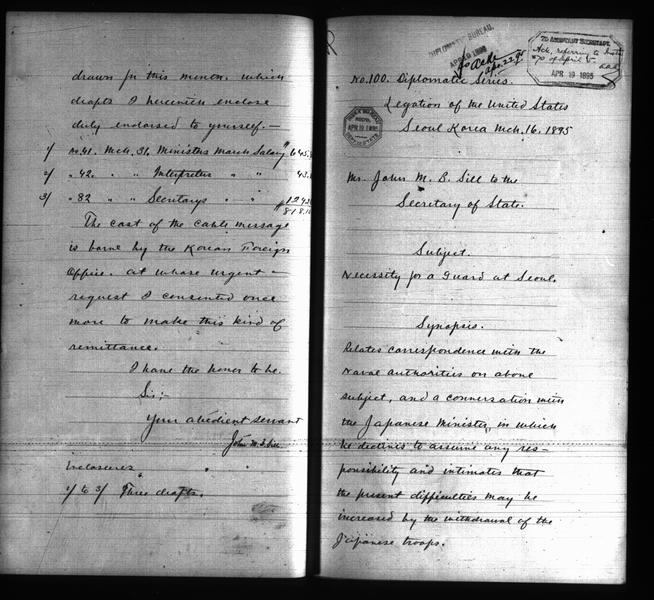 drawn for this month, which
drafts I herewith enclose
duly endorsed to yourself.—
1/ No. 41. Mch. 31. Ministers March Salary
2/ " 42. " " Interpreter " "
3/ " 82 " " Secretarys " "
The cost of the cable message
is borne by the Korean Foreign
Office. at whose urgent
request I consented once
more to make this kind of
remittance.
I have the honor to be.
Sir;
Your obedient servant
John M. B. Sill
Enclosures
1/ to 3/ Three drafts.
DIPLOMATIC BUREAU.
Apr. 22, 95
TO ASSISTANT SECRETARY.
Ack, referring to
of April 5
APR 19 1895
No. 100. Diplomatic Series.
Legation of the United States
Seoul Korea Mch. 16. 1895
APR 19 1895
Mr. John M. B. Sill to the
Secretary of State.
Subject.
Necessity for a Guard at Seoul.
Synopsis.
Relates correspondence with the
Naval authorities on above
subject, and a conversation with
the Japanese Minister, in which
he declines to assume any res-
ponsibility and intimates that
the present difficulties may be
increased by the withdrawal of the
Japanese troops.